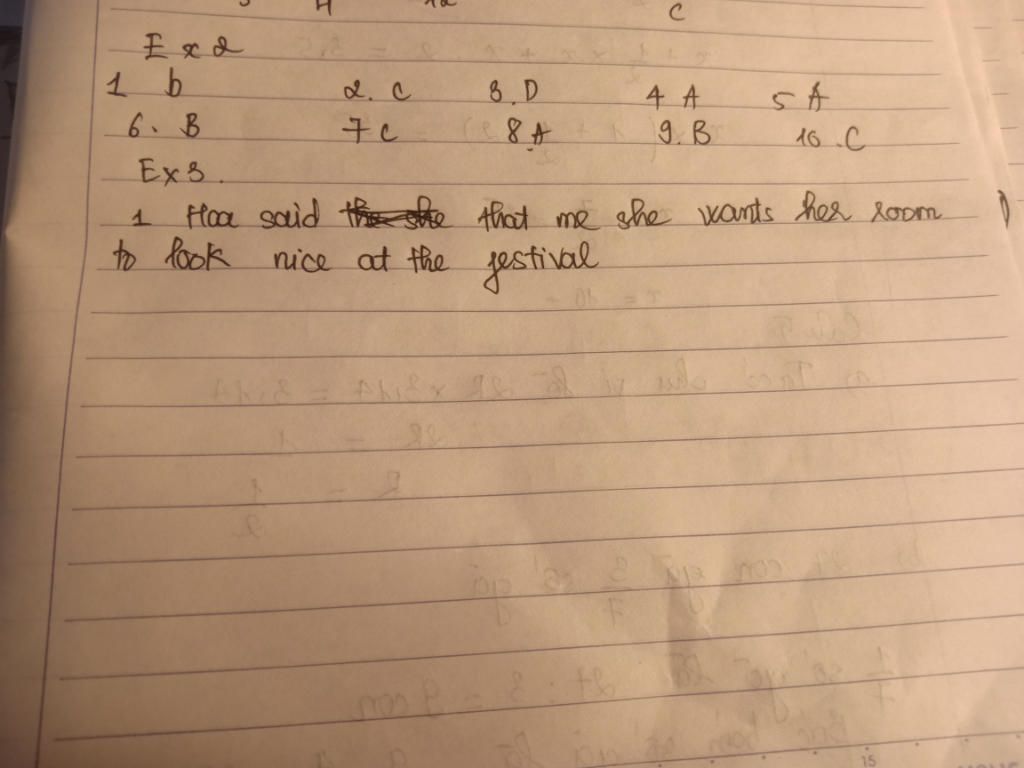 C
Ex 2
1 b 2. C 3. D 4 A 5 A
6. B 7 C 8. A 9. B 10. C
Ex 3.
1 Hoa said that me she wants her room
to look nice at the festival
15